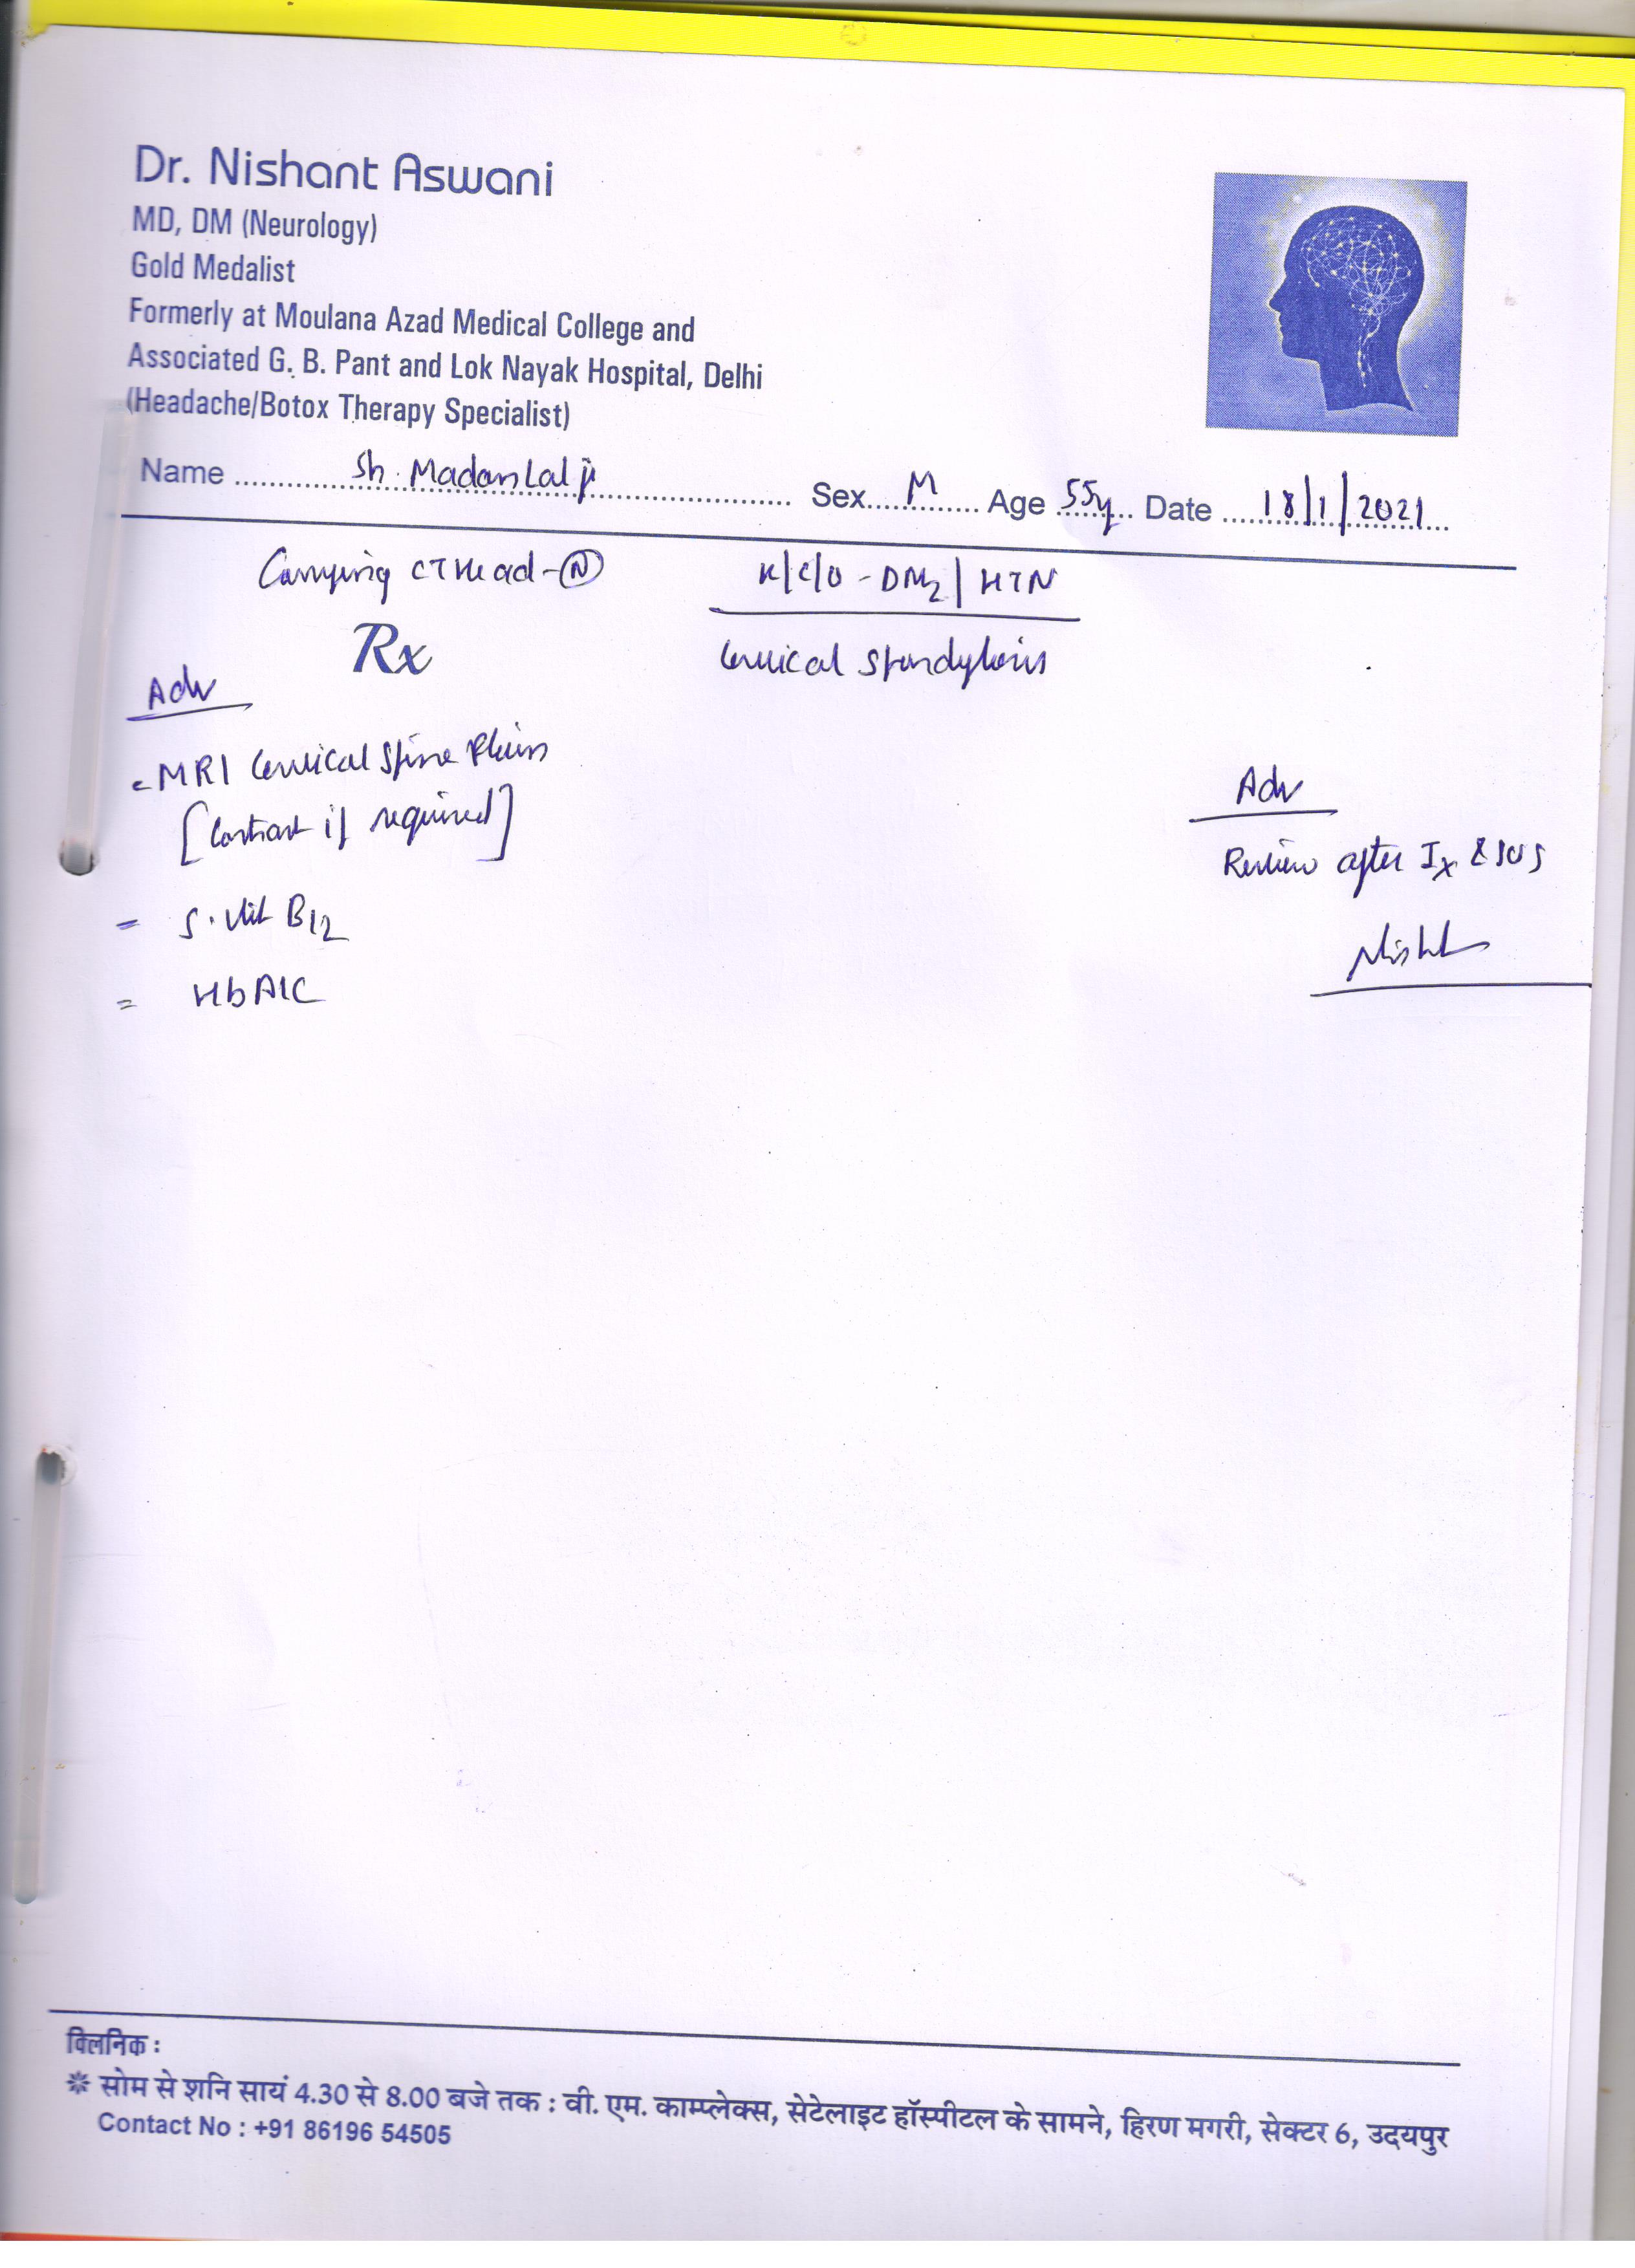 Dr. Nishant Aswani
MD, DM (Neurology)
Gold Medalist
Formerly at Moulana Azad Medical College and
Associated G. B. Pant and Lok Nayak Hospital, Delhi
(Headache/Botox Therapy Specialist)
Name Sh. Madan Lal ji Sex M Age 55y Date 18/1/2021
Carrying CT Head - (N) K/C/O - DM2 / HTN
Rx Cervical Spondylosis
Adv
- MRI Cervical Spine Plain
[Contrast if required]
Adv
Review after Ix & SOS
= S. Vit B12
= HbA1C
क्लिनिक :
* सोम से शनि सायं 4.30 से 8.00 बजे तक : वी. एम. काम्प्लेक्स, सेटेलाइट हॉस्पीटल के सामने, हिरण मगरी, सेक्टर 6, उदयपुर
Contact No : +91 86196 54505